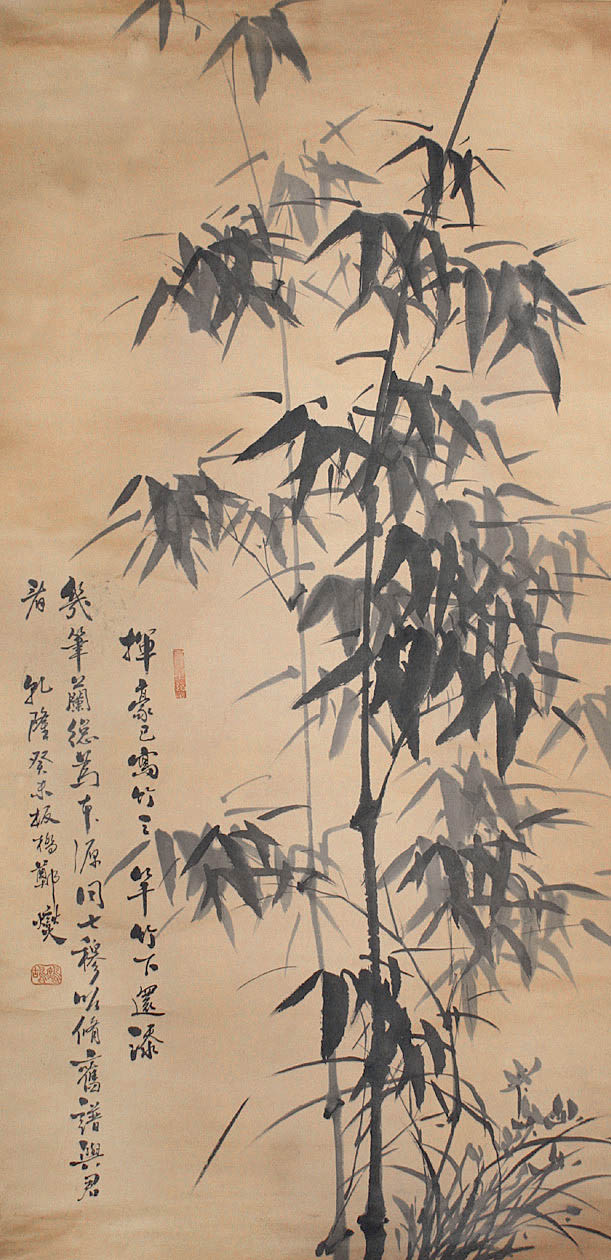 揮豪已寫竹三竿竹下還添
幾筆蘭總為本源同七穆欲修舊譜與君
看 乾隆癸未板橋鄭燮